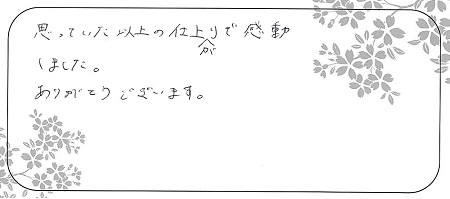 思っていた以上の仕上がりで感動
しました。
ありがとうございます。